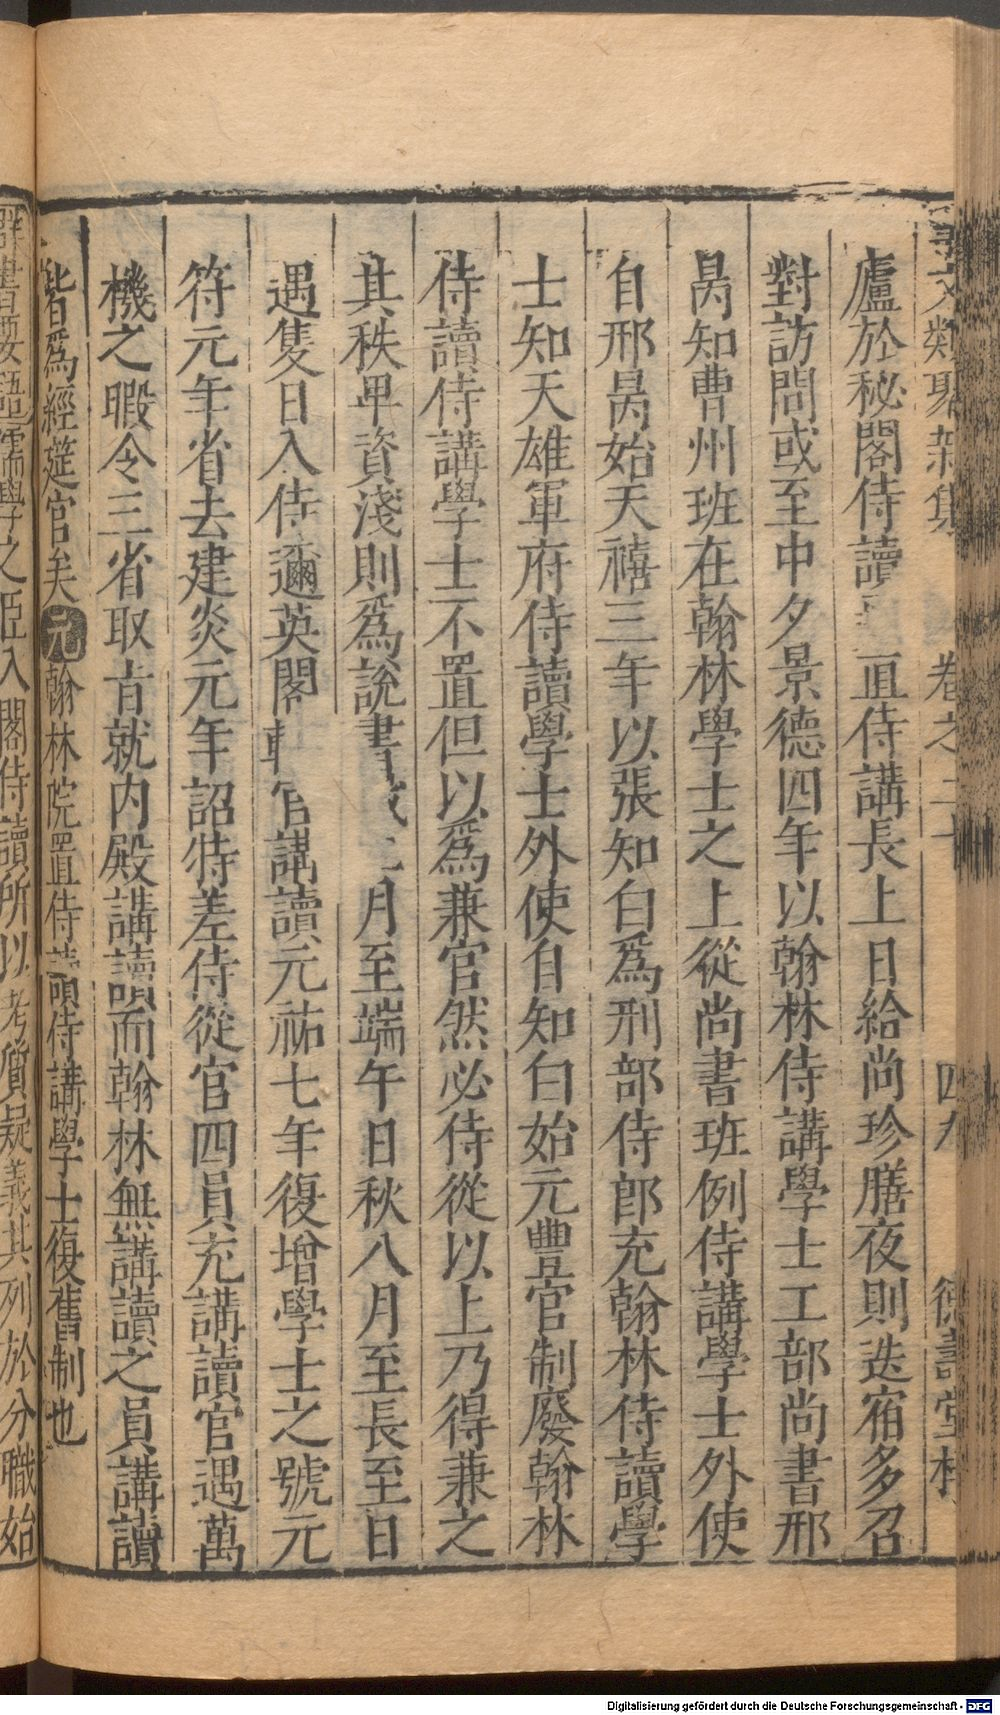 文類聚新集 卷之二十 四九 德壽堂梓
廬於秘閣侍讀直侍講長上日給尚珍膳夜則迭宿多召
對訪問或至中夕景德四年以翰林侍講學士工部尚書邢
昺知曹州班在翰林學士之上從尚書班例侍講學士外使
自邢昺始天禧三年以張知白爲刑部侍郎充翰林侍讀學
士知天雄軍府侍讀學士外使自知白始元豐官制廢翰林
侍讀侍講學士不置但以爲兼官然必侍從以上乃得兼之
其秩卑資淺則爲說書歲二月至端午日秋八月至長至日
遇隻日入侍邇英閣輪官講讀元祐七年復增學士之號元
符元年省去建炎元年詔特差侍從官四員充講讀官遇萬
機之暇令三省取旨就內殿講讀而翰林無講讀之員講讀
皆爲經筵官矣元翰林院置侍讀侍講學士復舊制也
儒學之臣入閣侍讀所以考質疑義其列於分職始
Digitalisierung gefördert durch die Deutsche Forschungsgemeinschaft - DFG